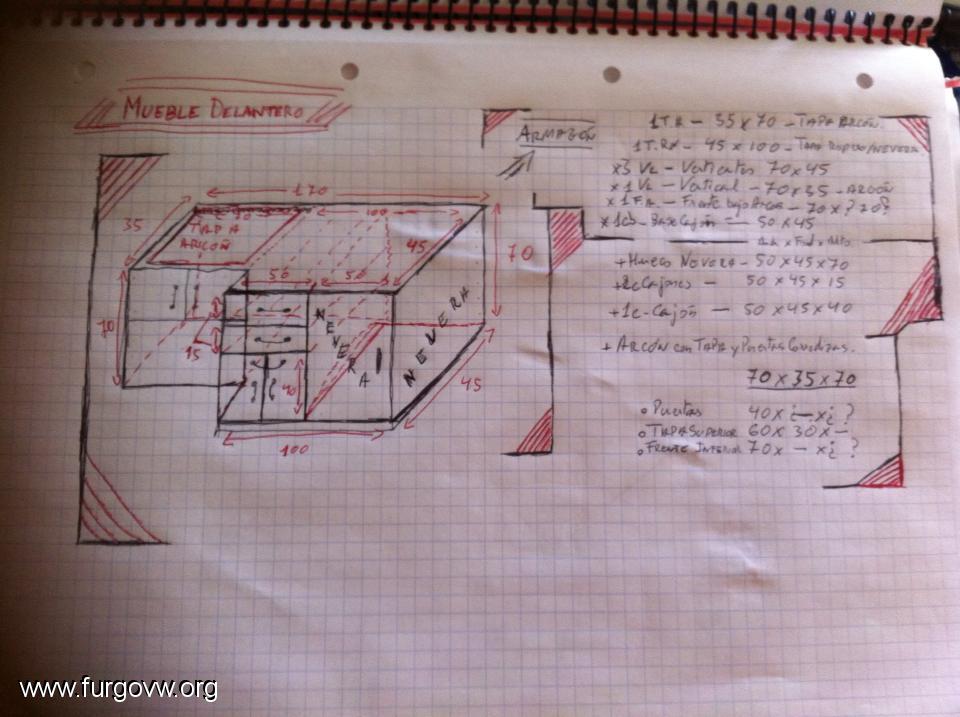 MUEBLE DELANTERO
ARMAZÓN
1T.A - 35 x 70 - TAPA ARCÓN.
1T.RN - 45 x 100 - TAPA /NEVERA
x3 V2 - Verticales 70 x 45
x1 V2 - Vertical - 70 x 35 - ARCÓN
x 1 F.A - Frente bajo - 70 x ? 20?
x 1cb - Base Cajón - 50 x 45
x Fnd x Alto
+ Hueco Nevera - 50 x 45 x 70
+ 2c Cajones - 50 x 45 x 15
+ 1c - Cajón - 50 x 45 x 40
+ ARCÓN con TAPA y Puertas Corredizas.
70 x 35 x 70
o Puertas 40 x ¿ - x ¿ ?
o TAPA SUPERIOR 60 x 30 x -
o FRENTE INFERIOR 70 x - x ¿ ?
170
35
100
TAPA
ARCÓN
45
70
50
50
70
15
NEVERA
NEVERA
40
45
100
www.furgovw.org